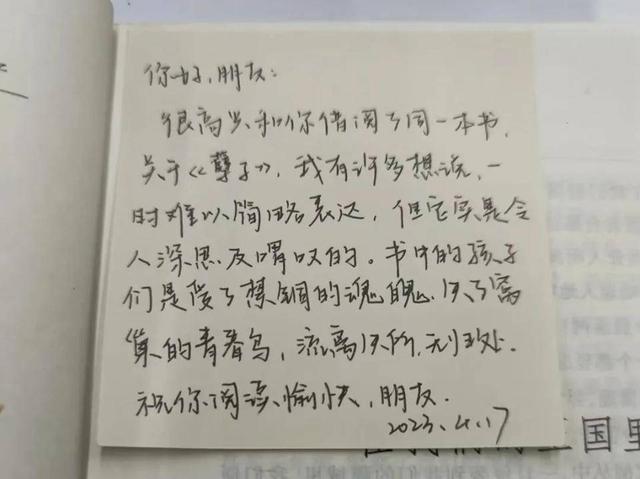 你好,朋友:
很高兴和你借阅了同一本书,
关于《孽子》,我有许多想说,一
时难以简略表达,但它实是令
人深思及喟叹的。书中的孩子
们是受了禁锢的魂魄,失了窝
巢的青春鸟,流离失所,无归处.
祝你阅读愉快,朋友.
2023.4.17
国里